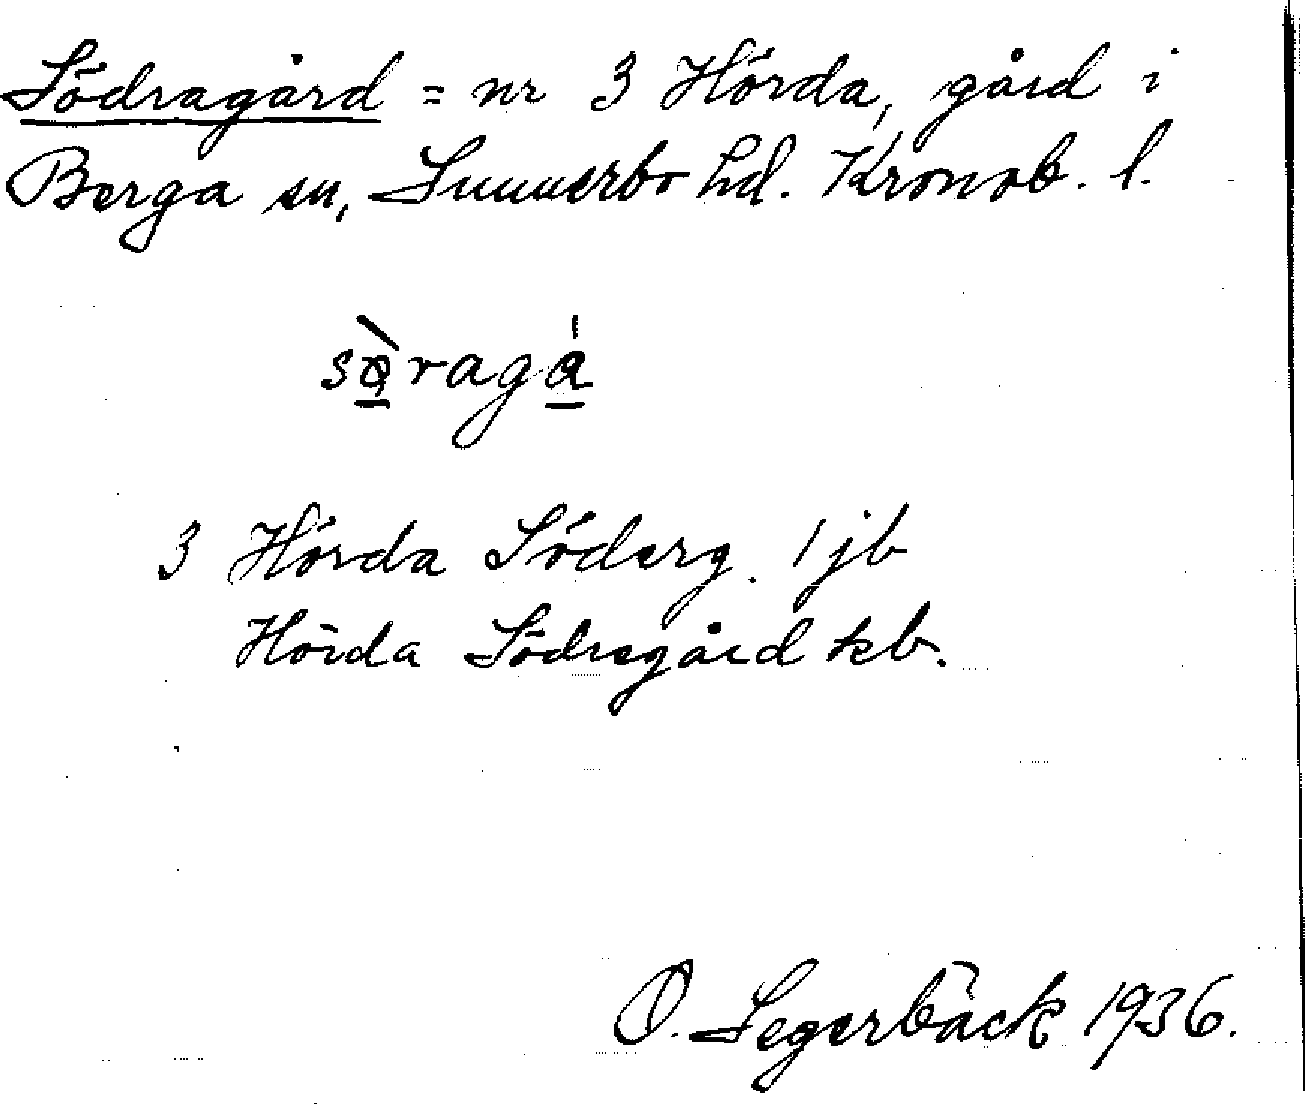 Södragård = nr 3 Hörda, gård i
Berga sn, Sunnerbo hd. Kronob. l.
sø̱̀raga̱̍
3 Hörda Söderg. 1 jb
Hörda Södregård kb.
O. Segerbäck 1936.